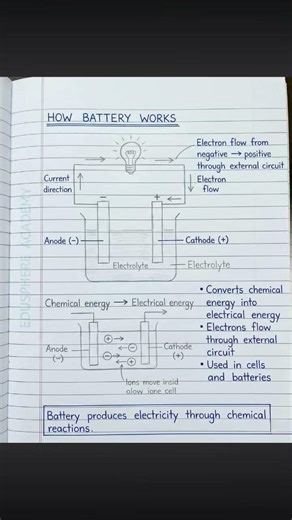 HOW BATTERY WORKS
Electron flow from
negative → positive
through external circuit
Current
direction
Electron
flow
− +
Anode (−)
Cathode (+)
Electrolyte
Electrolyte
Chemical energy → Electrical energy
Anode
(−)
+ −
− +
Cathode
(+)
Ions move insid
alow ione cell
• Converts chemical
energy into
electrical energy
• Electrons flow
through external
circuit
• Used in cells
and batteries
Battery produces electricity through chemical
reactions.
EDUSPHERE ACADEMY